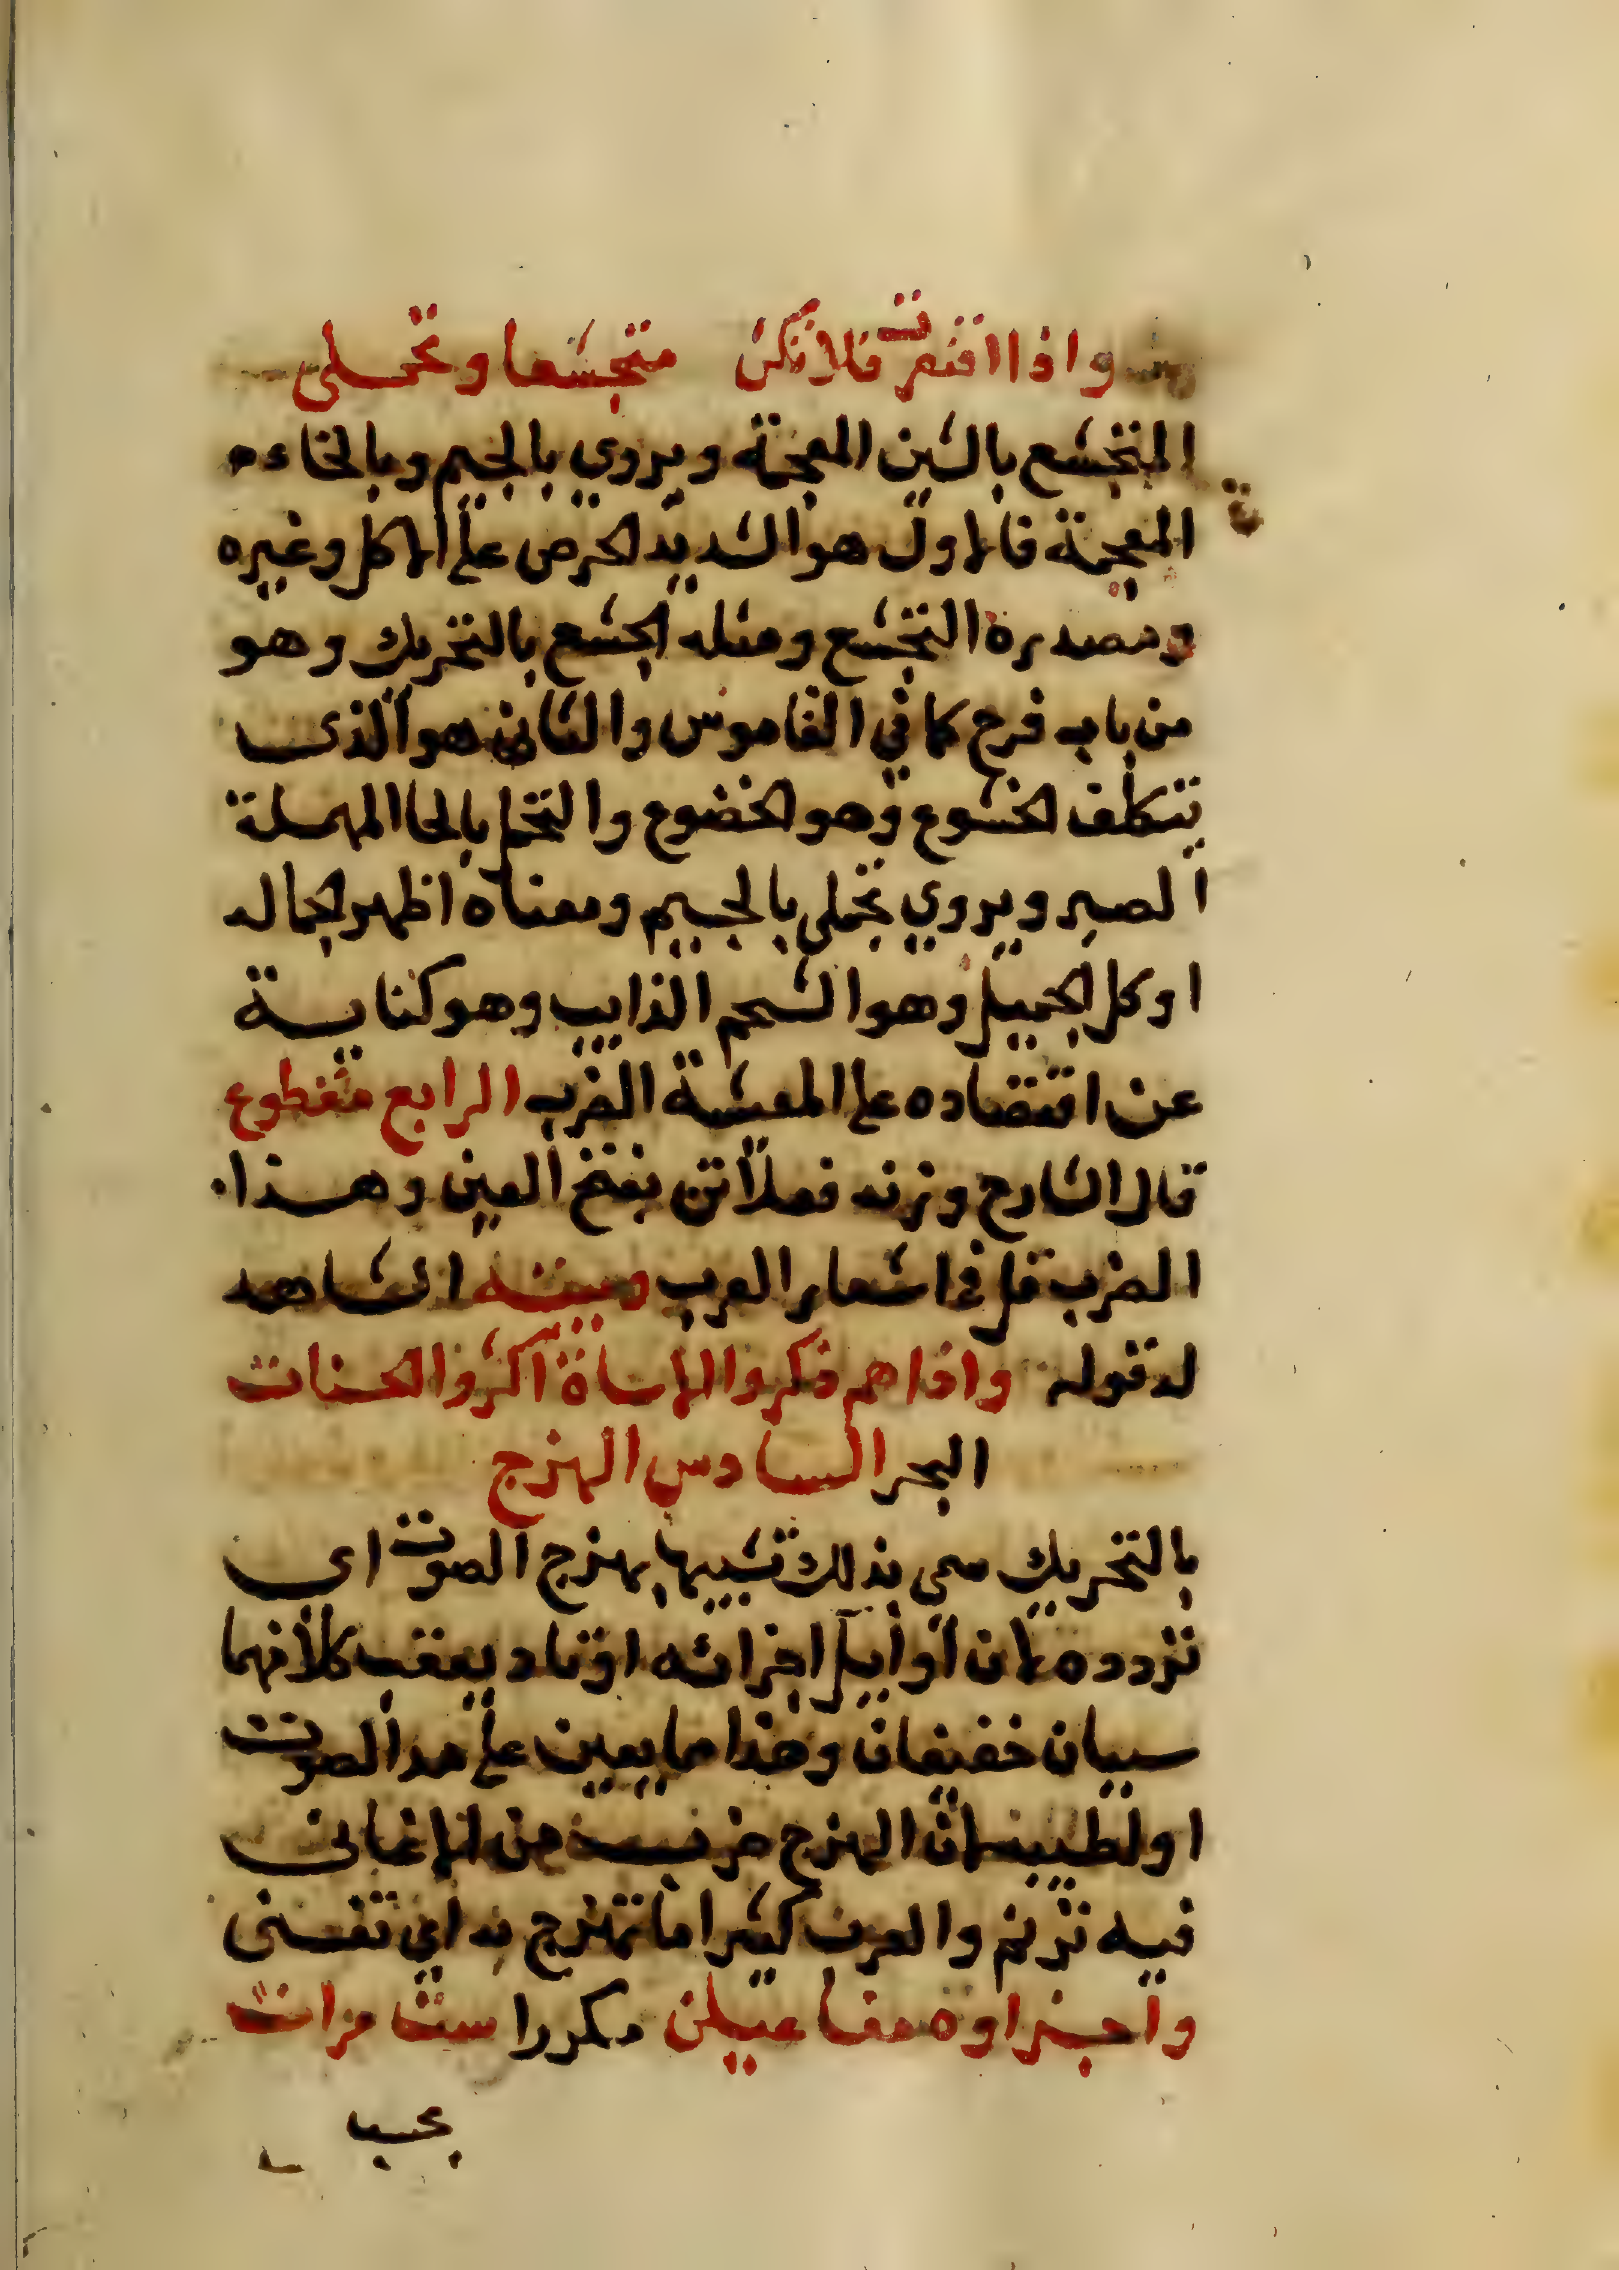 واذا افتقرت فلا تكن متجشعا وتحملى
المتجشع بالشين المعجمة ويروي بالجيم وبالخاء
المعجمة فالاول هو الشديد الحرص على الاكل وغيره
ومصدره التجشع ومثله الجشع بالتحريك وهو
من باب فرح كما في القاموس والثاني هو الذى
يتكلف الخشوع وهو الخضوع والتحمل بالحا المهملة
الصبر ويروي تجملى بالجيم ومعناه اظهر الجماله
او كل الجميل وهو الشحم الذايب وهو كناية
عن اقتصاده على المعشية الضرب الرابع مقطوع
قال الشارح وزنه فعلاتن بفتح العين وهذا
الضرب قل فى اشعار العرب وبيته الشاهد
له قوله واذا هم ذكروا الاساة اكثروا الحسنات
البحر السادس الهزج
بالتحريك سمى بذلك تشبيها بهزج الصوت اى
تردده لان أوايل اجزائه اوتاد يعقب كلا منها
سببان خفيفان وهذا مما يعين على مد الصوت
او لطيبه لان الهزج ضرب من الاغانى
فيه ترنم والعرب كثيرا ما تهزج به اي تغنى
واجزاوه مفاعيلن مكررا ست مرات
بحسب